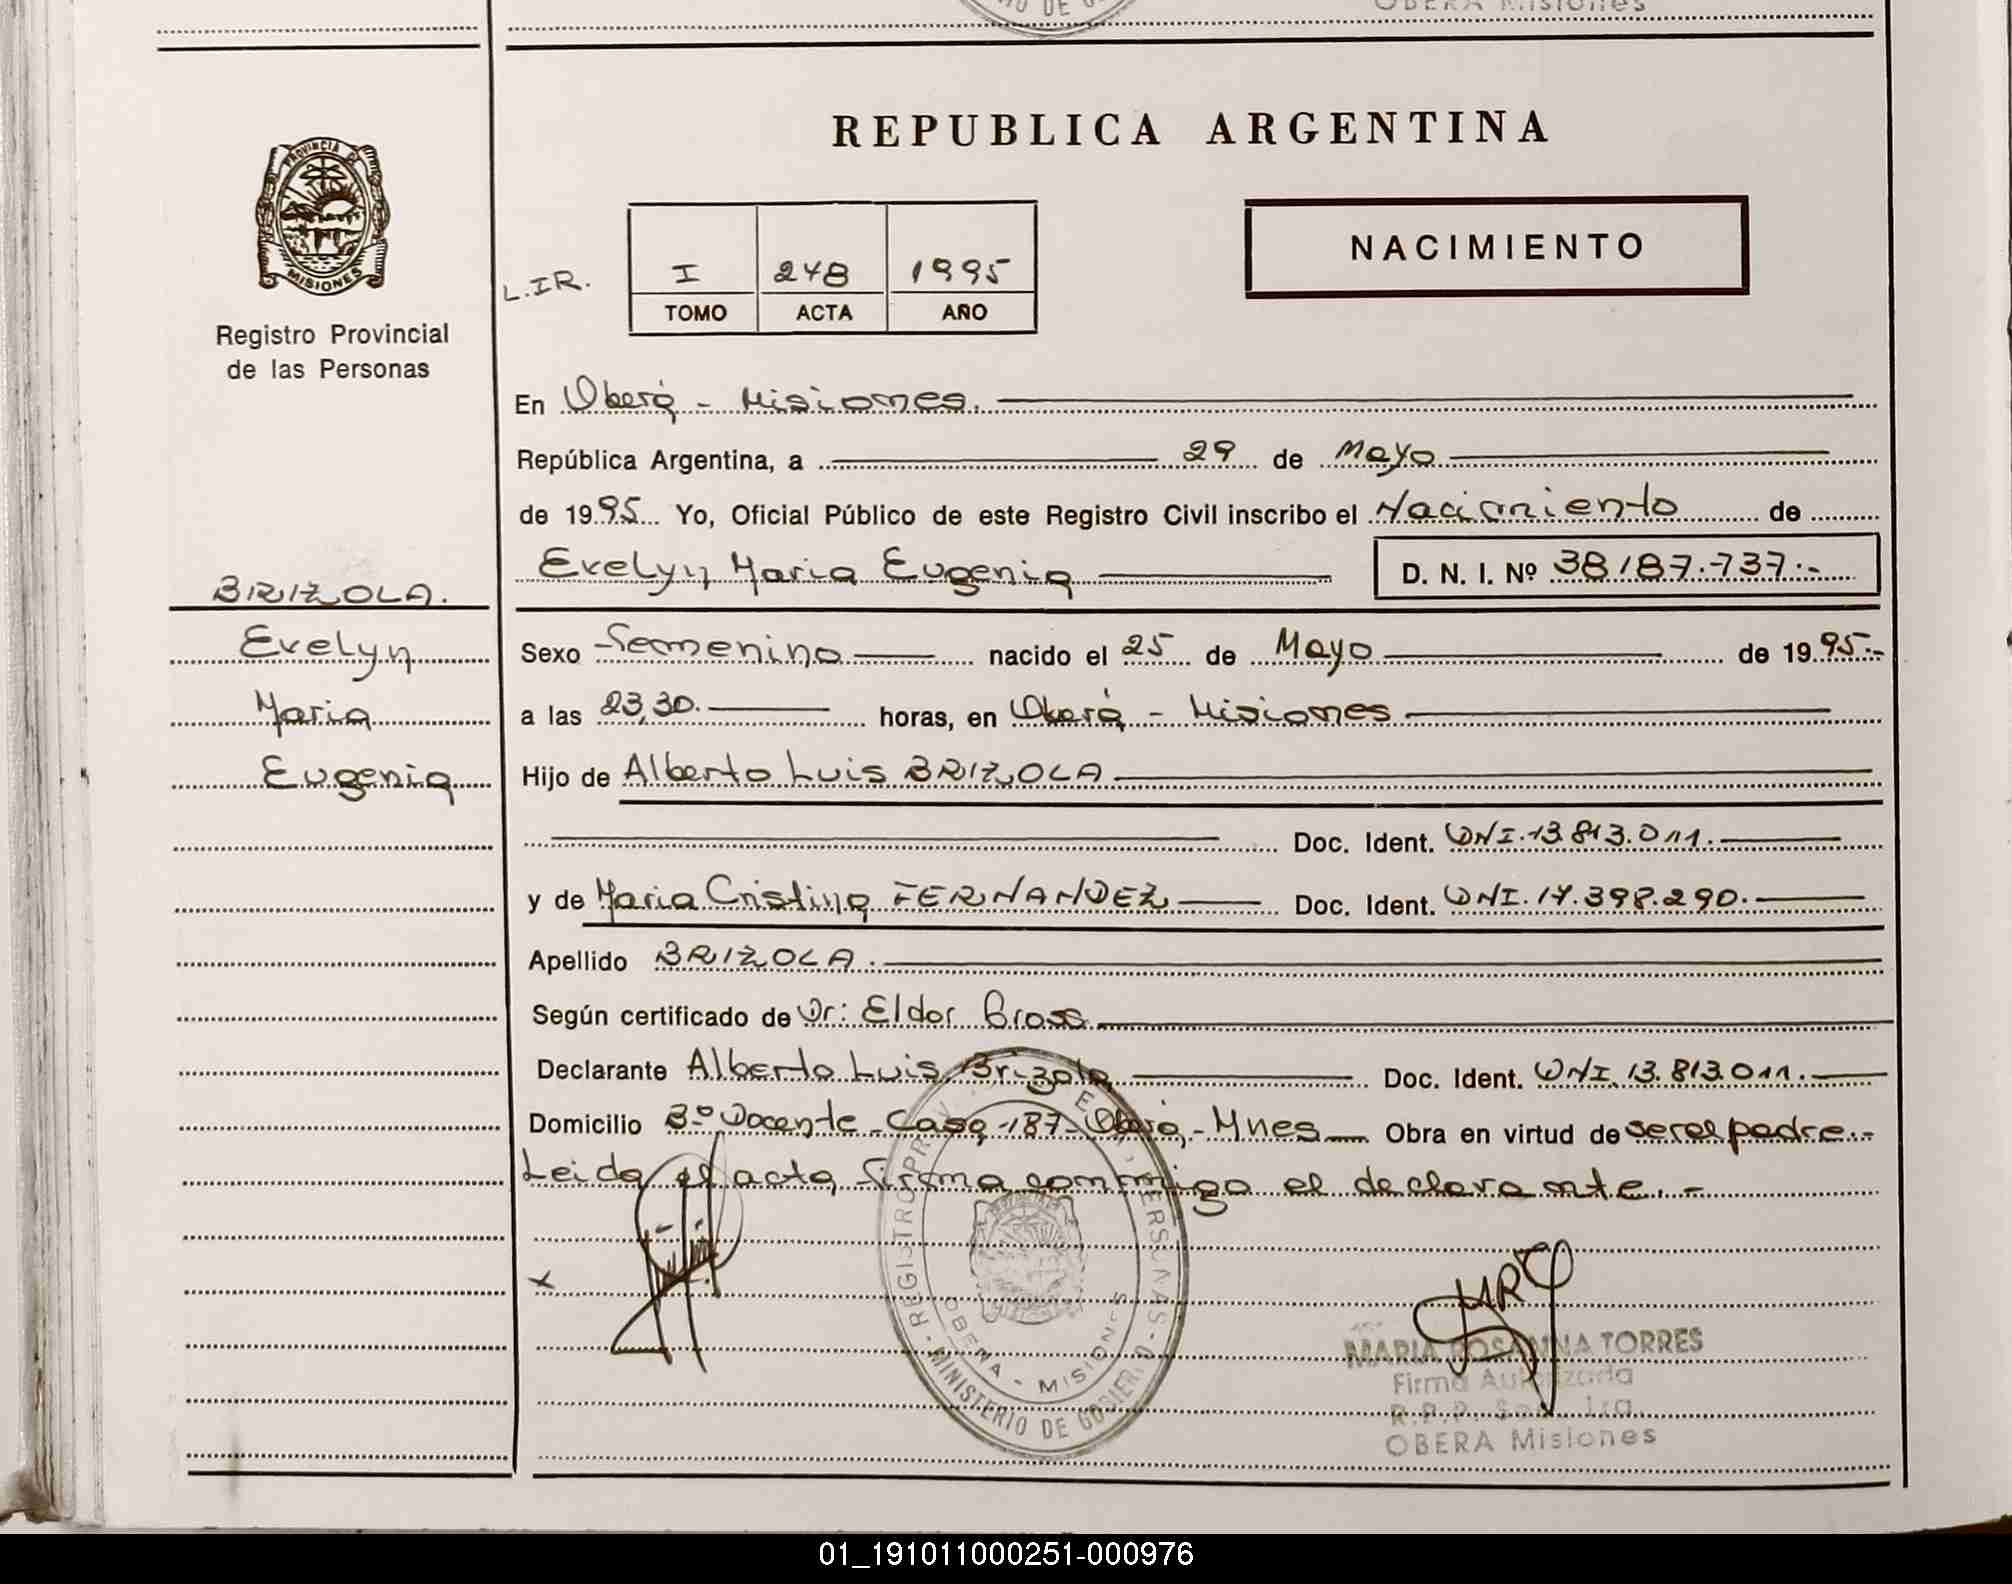 OBERA Misiones
PROVINCIA DE
MISIONES
Registro Provincial
de las Personas
REPUBLICA ARGENTINA
NACIMIENTO
L.IR.
I 248 1995
TOMO ACTA AÑO
En Oberá - Misiones.
República Argentina, a 29 de Mayo
de 1995 Yo, Oficial Público de este Registro Civil inscribo el Nacimiento de
Evelyn Maria Eugenia D. N. I. Nº 38187.737.-
BRIZOLA.
Evelyn
Maria
Eugenia
Sexo Femenino nacido el 25 de Mayo de 1995.-
a las 23,30. horas, en Oberá - Misiones
Hijo de Alberto Luis BRIZOLA
Doc. Ident. DNI.13.813.011.
y de Maria Cristina FERNANDEZ Doc. Ident. DNI.17.398.290.
Apellido BRIZOLA.
Según certificado de Dr: Eldor Gross
Declarante Alberto Luis Brizola Doc. Ident. DNI.13.813.011.
Domicilio Bº Docente-Casa-187-Oberá,-Mnes Obra en virtud de ser el padre.-
Leida el acta, firma conmigo el declarante.-
x
MINISTERIO DE GOBIERNO
OBERA - MISIONES
MARIA ROSANNA TORRES
Firma Autorizada
OBERA Misiones
01_191011000251-000976